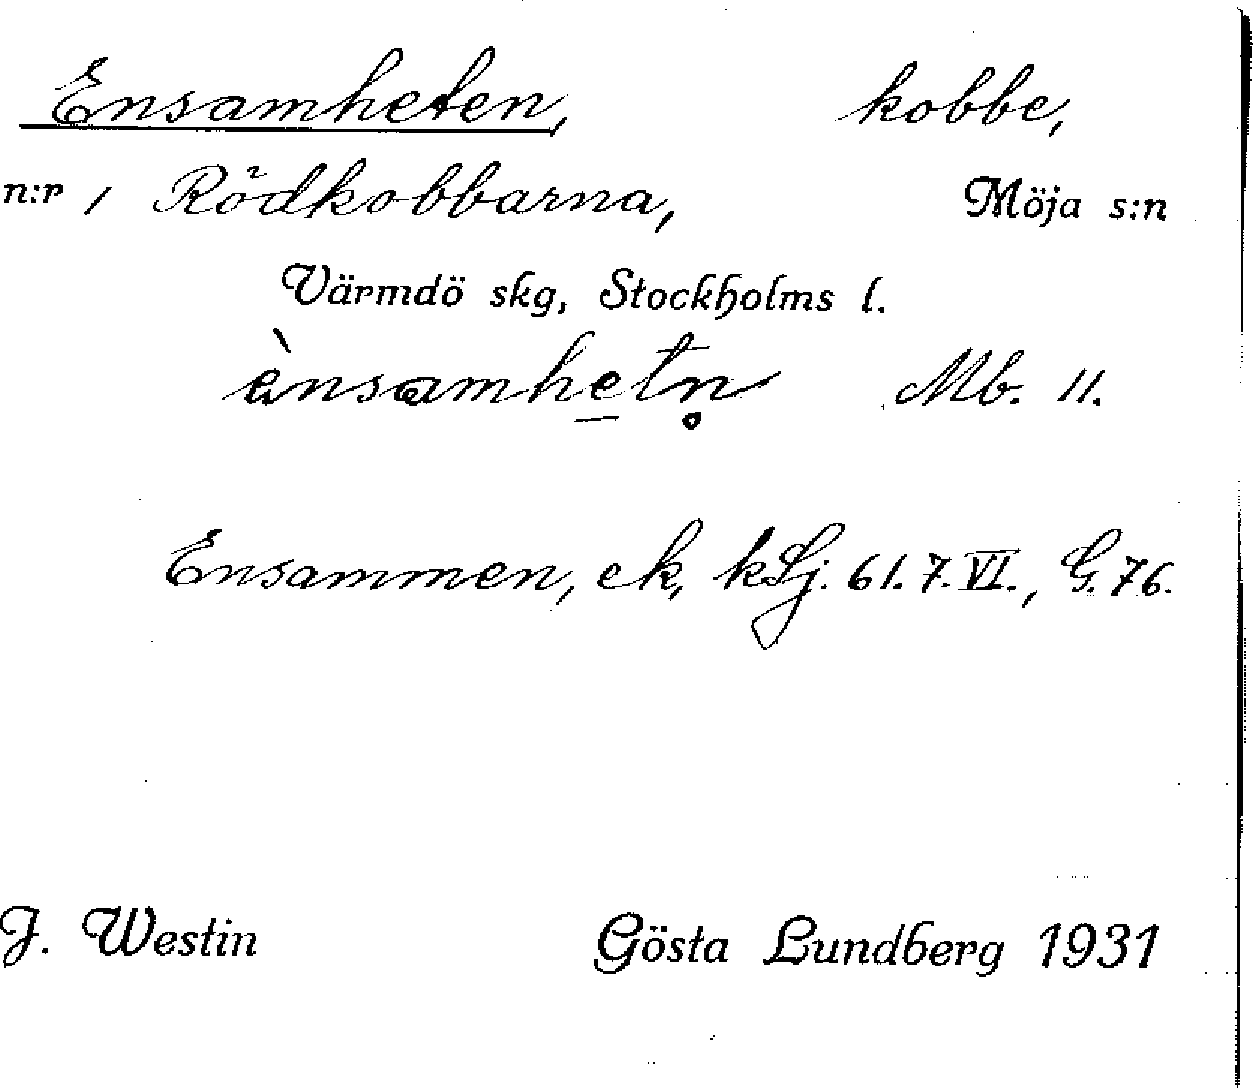 Ensamheten, kobbe,
n:r 1 Rödkobbarna, Möja s:n
Värmdö skg, Stockholms l.
ènsamhe̲tn̥ Mb. 11.
Ensammen, ek, kLj. 61. 7. VI., G. 76.
J. Westin Gösta Lundberg 1931